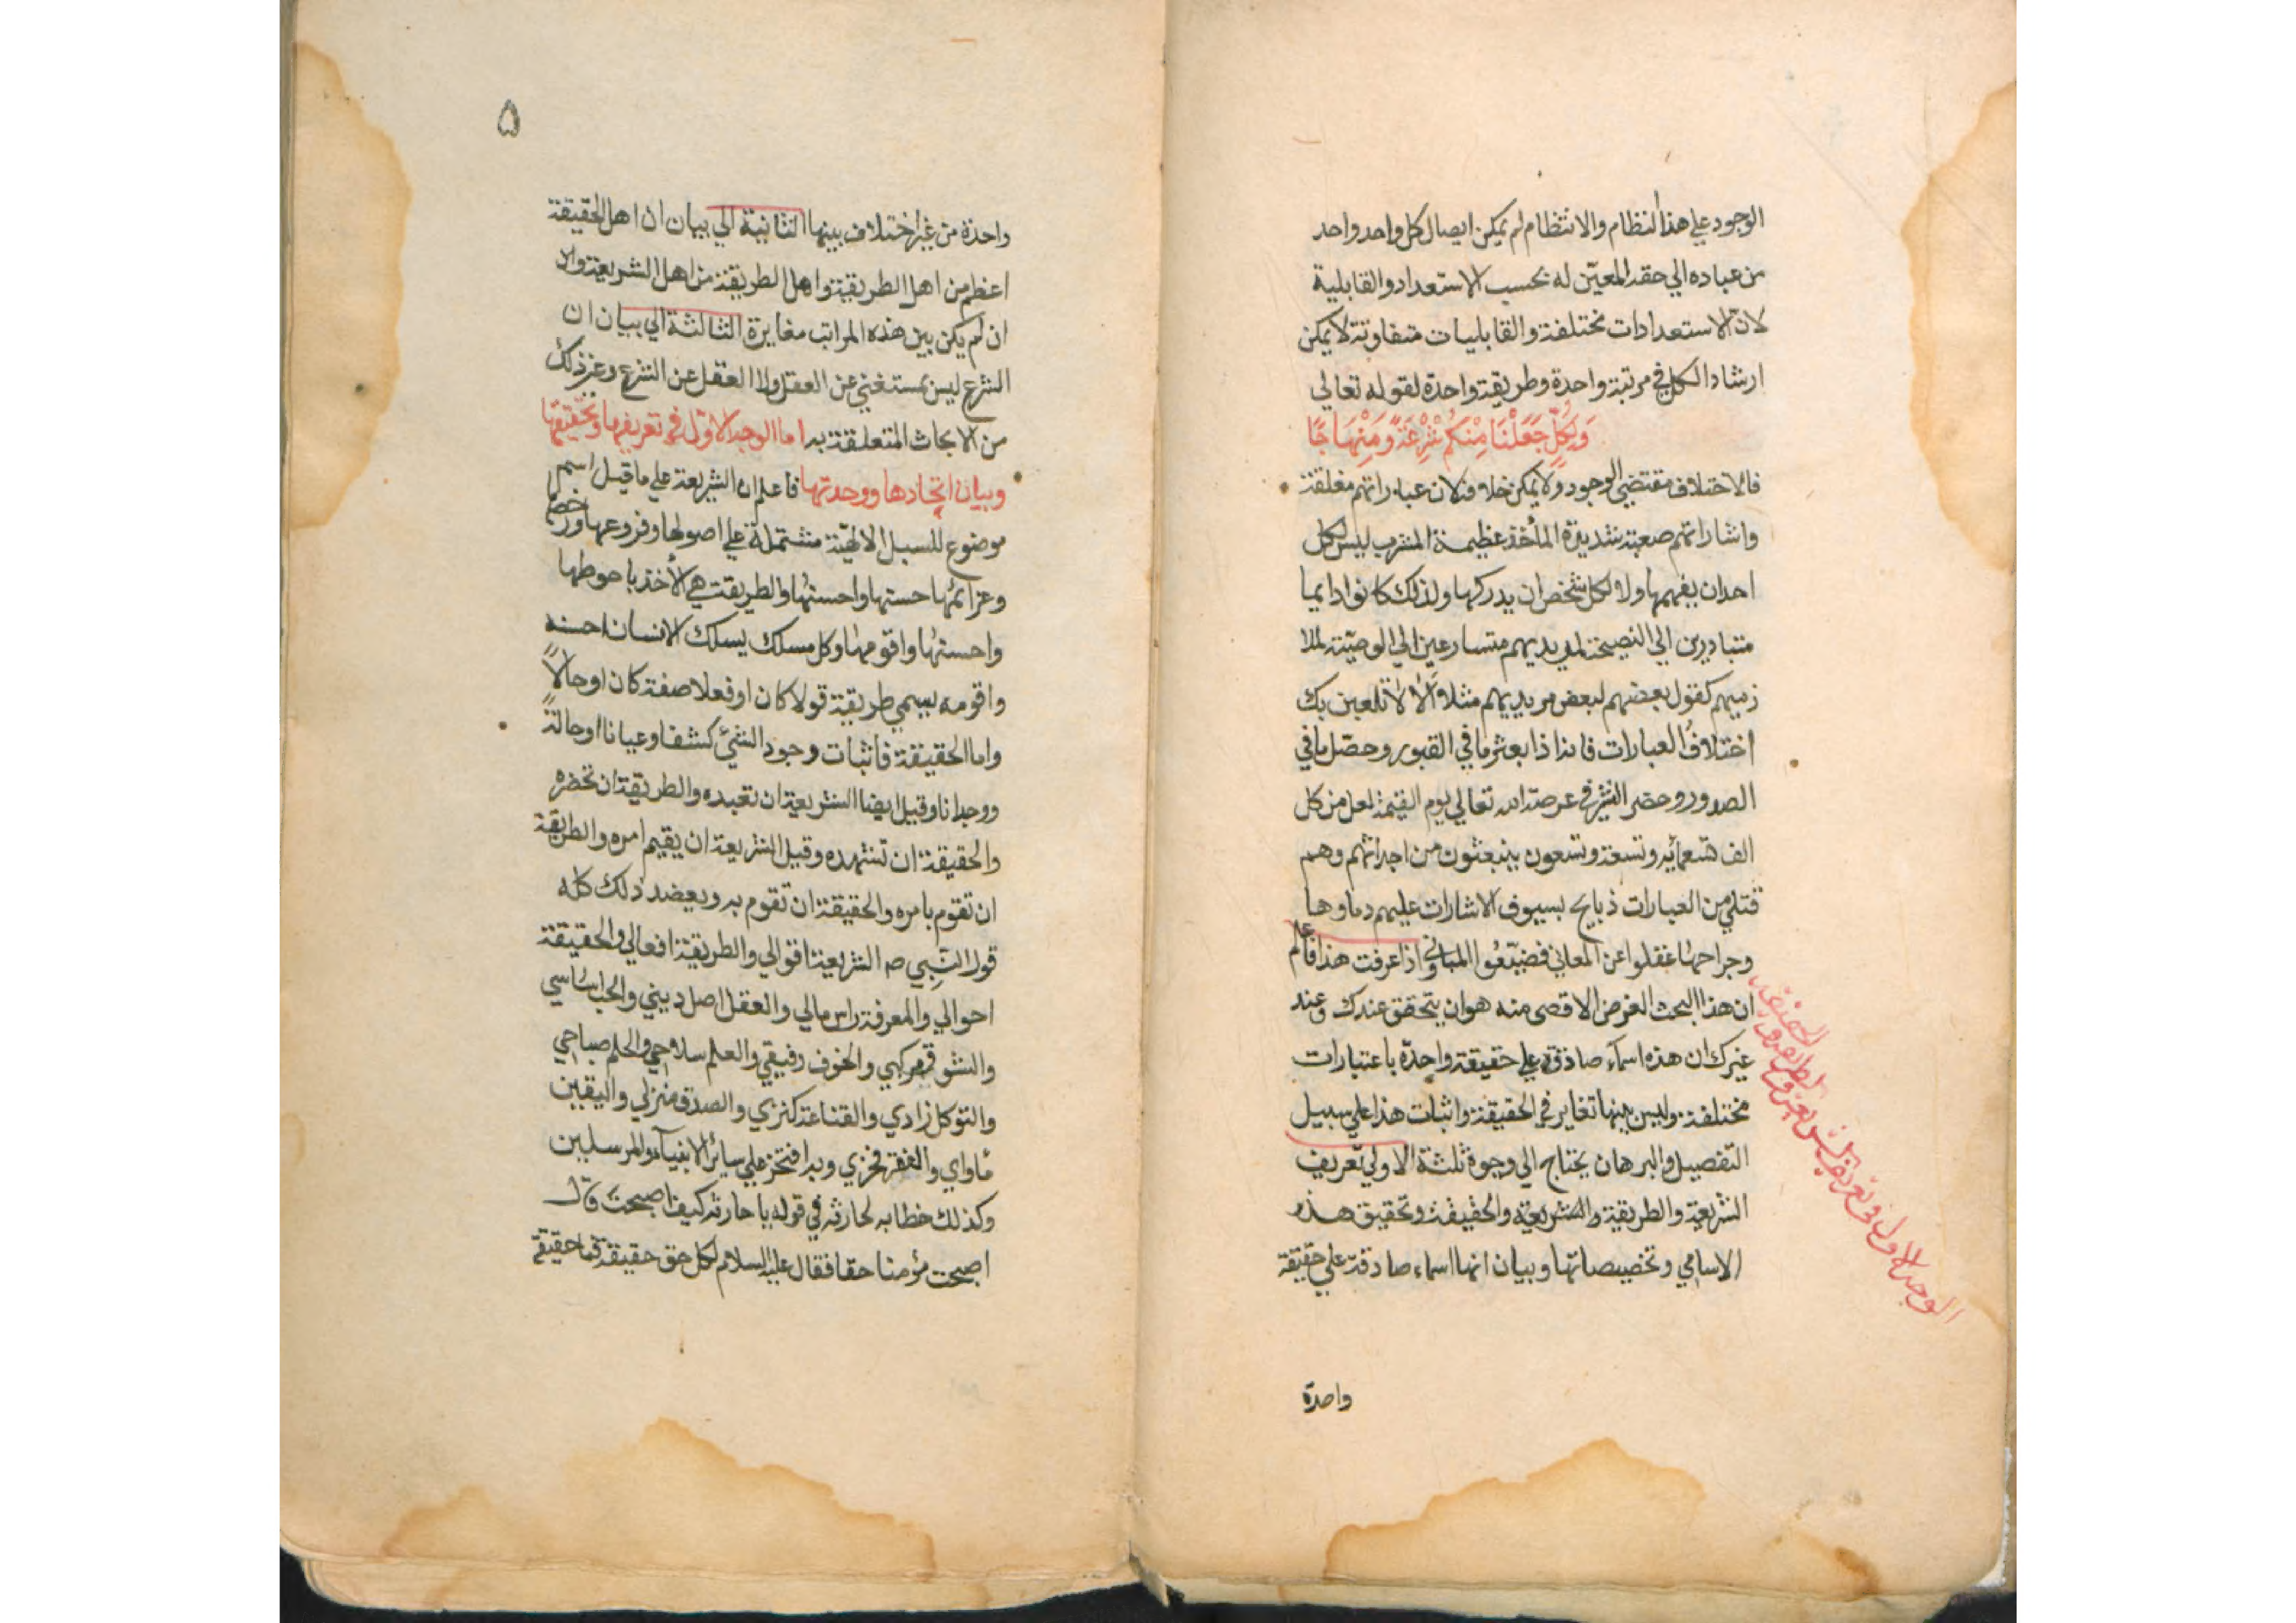 الوجود علي هذا النظام والانتظام لم يمكن ايصال كل واحد واحد
من عباده الي حقه المعيّن له بحسب الاستعداد والقابلية
لانّ الاستعدادات مختلفة والقابليات متفاوتة لا يمكن
ارشاد الكل في مرتبة واحدة وطريقة واحدة لقوله تعالي
وَلِكُلٍّ جَعَلْنَا مِنْكُمْ شِرْعَةً وَمِنْهَاجًا
فالاختلاف مقتضي الوجود ولا يمكن خلافه لان عباراتهم مغلقة
واشاراتهم صعبة شديدة المأخذ عظيمة المشرب ليس لكل
احد ان يفهمها ولا لكل شخص ان يدركها ولذلك كانوا دايما
متبادرين الي النصيحة لمريديهم متسارعين الي الوصيّة لملا
زميهم كقول بعضهم لبعض مريديهم مثلا وَالا لا تلعبن بك
اختلافُ العبارات فانه اذا بعثر ما في القبور وحصّل ما في
الصدور وحضر البشر في عرصة الله تعالي يوم القيمة لعل من كل
الف تسعمائه وتسعة وتسعون ينبعثون من اجداثهم وهم
قتلي من العبارات ذبايح بسيوف الاشارات عليهم دماوها
وجراحها غفلوا عن المعاني فضيّعُوا المباني واذا عرفت هذا فاعلم
ان هذا البحث الغرض الاقصي منه هو ان يتحقق عندك وعند
غيرك ان هذه اسمآء صادقة علي حقيقة واحدة باعتبارات
مختلفة وليس بينها تغاير في الحقيقة واثبات هذا علي سبيل
التفصيل والبرهان يحتاج الي وجوه ثلثة الاولي تعريف
الشريعة والطريقة والشريعة والحقيقة وتحقيق هذه
الاسامي وتخصيصاتها وبيان انها اسماء صادقة علي حقيقة
واحدة
الوجه الاول في تعريف الشريعة و
الطريقة و
الحقيقة
۵
واحدة من غير اختلاف بينها الثانية الي بيان ان اهل الحقيقة
اعظم من اهل الطريقة واهل الطريقة من اهل الشريعة وان
ان لم يكن بين هذه المراتب مغايرة الثالثة الي بيان ان
الشرع ليس بمستغني عن العقل ولا العقل عن الشرع وغير ذلك
من الابحاث المتعلقة به اما الوجه الاوّل في تعريفها وتحقيقها
وبيان اتحادها ووحدتها فاعلم ان الشريعة علي ما قيل اسم
موضوع للسبل الالهيّة مشتملة علي اصولها وفروعها ورخصها
وعزائمها حسنها واحسنها والطريقة هي الأخذ باحوطها
واحسنها واقومها وكل مسلك يسلك الانسان احسنه
واقومه يسمي طريقة قولا كان او فعلا صفة كان او حالاً
واما الحقيقة فاثبات وجود الشئ كشفا وعيانا او حالةً
ووجدانا وقيل ايضا الشريعة ان تعبده والطريقة ان تحضره
والحقيقة ان تشهده وقيل الشريعة ان يقيم امره والطريقة
ان تقوم بامره والحقيقة ان تقوم به ويعضد ذلك كله
قول النَّبِي صم الشريعة اقوالي والطريقة افعالي والحقيقة
احوالي والمعرفة راس مالي والعقل اصل ديني والحب اساسي
والشوق مركبي والخوف رفيقي والعلم سلاحي والحلم صاحبي
والتوكل زادي والقناعة كنزي والصدق منزلي واليقين
مأواي والفقر فخري وبه افتخر علي سائر الانبيآء والمرسلين
وكذلك خطابه لحارثه في قوله يا حارثه كيف اصبحت قال
اصبحت مؤمنا حقا فقال عليه السلام لكل حق حقيقة فما حقيقة